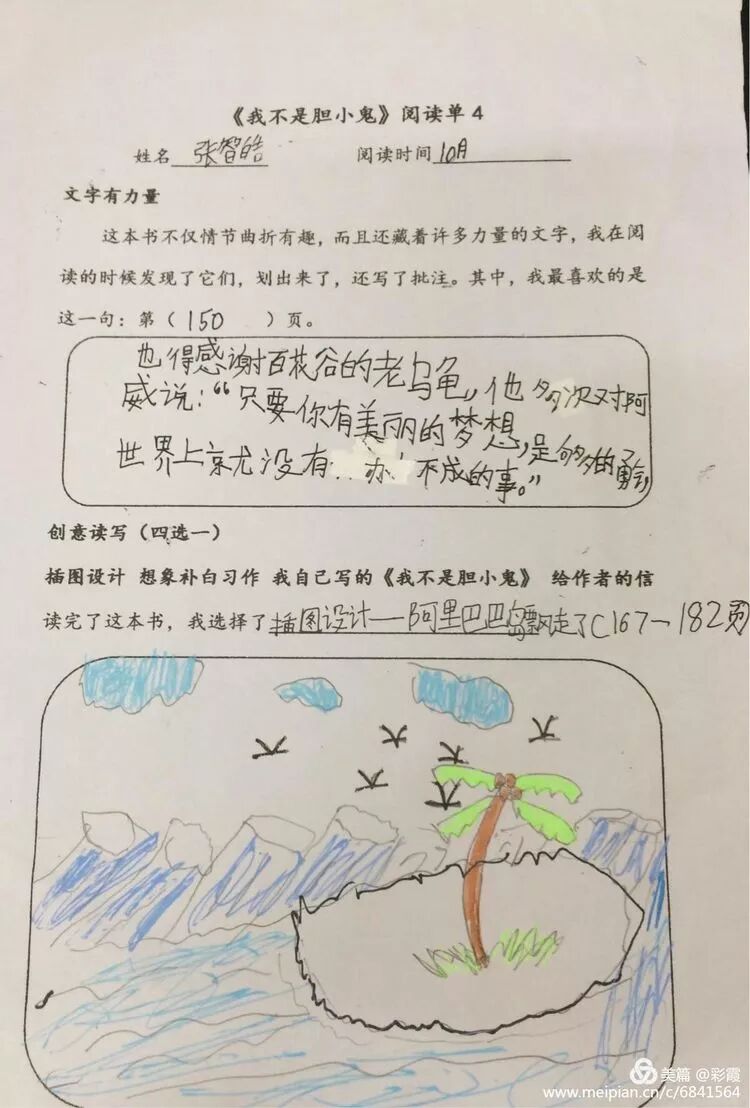 《我不是胆小鬼》阅读单4
姓名 张智皓 阅读时间 10月
文字有力量
这本书不仅情节曲折有趣，而且还藏着许多力量的文字，我在阅
读的时候发现了它们，划出来了，还写了批注。其中，我最喜欢的是
这一句：第（150）页。
也得感谢百花谷的老乌龟，他多次对阿
威说：“只要你有美丽的梦想，足够的勇气，
世界上就没有办不成的事。”
创意读写（四选一）
插图设计 想象补白习作 我自己写的《我不是胆小鬼》 给作者的信
读完了这本书，我选择了插图设计——阿里巴巴岛飘走了（167—182页
美篇 @彩霞
www.meipian.cn/c/6841564